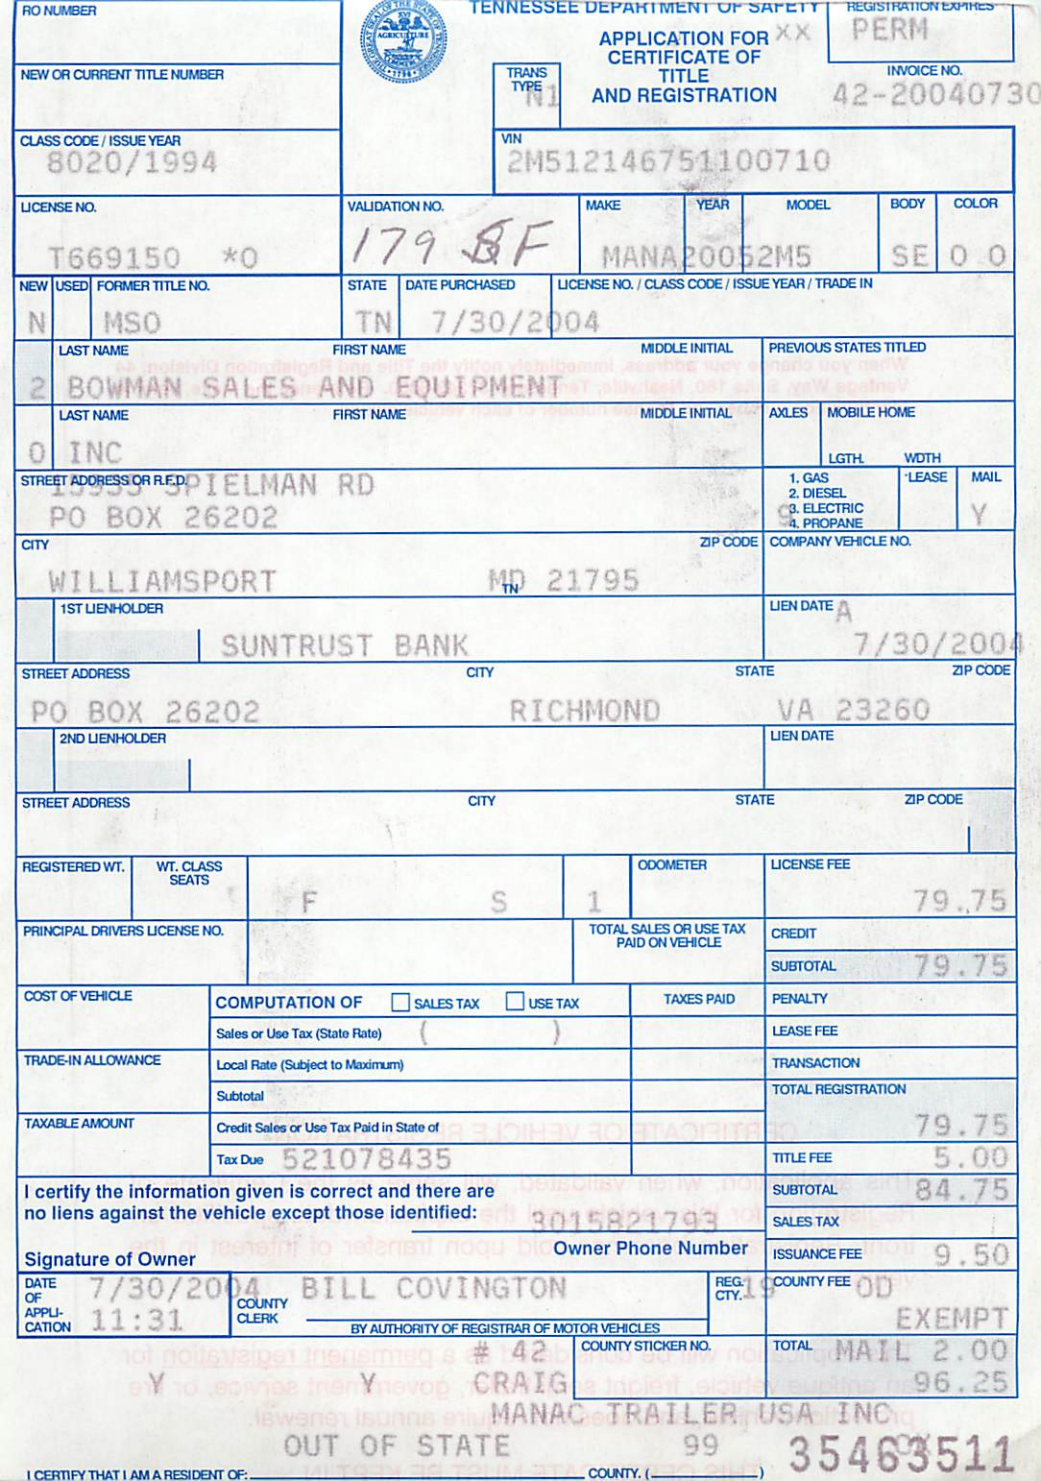 RO NUMBER
TENNESSEE DEPARTMENT OF SAFETY
REGISTRATION EXPIRES
XX PERM
APPLICATION FOR
CERTIFICATE OF
TITLE
AND REGISTRATION
AGRICULTURE
1796
NEW OR CURRENT TITLE NUMBER
TRANS TYPE
N1
INVOICE NO.
42-20040730
CLASS CODE / ISSUE YEAR
8020/1994
VIN
2M512146751100710
LICENSE NO.
VALIDATION NO.
MAKE YEAR MODEL BODY COLOR
T669150 *0
179 BF
MANA20052M5 SE 0 0
NEW USED FORMER TITLE NO. STATE DATE PURCHASED LICENSE NO. / CLASS CODE / ISSUE YEAR / TRADE IN
N MSO TN 7/30/2004
LAST NAME FIRST NAME MIDDLE INITIAL PREVIOUS STATES TITLED
2 BOWMAN SALES AND EQUIPMENT
LAST NAME FIRST NAME MIDDLE INITIAL AXLES MOBILE HOME
0 INC
LGTH. WDTH
STREET ADDRESS OR R.F.D.
SPIELMAN RD
PO BOX 26202
1. GAS
2. DIESEL
3. ELECTRIC
4. PROPANE
9
LEASE
MAIL
Y
CITY ZIP CODE COMPANY VEHICLE NO.
WILLIAMSPORT MD TN 21795
1ST LIENHOLDER LIEN DATE A
SUNTRUST BANK 7/30/2004
STREET ADDRESS CITY STATE ZIP CODE
PO BOX 26202 RICHMOND VA 23260
2ND LIENHOLDER LIEN DATE
STREET ADDRESS CITY STATE ZIP CODE
REGISTERED WT. WT. CLASS SEATS ODOMETER LICENSE FEE
F S 1 79.75
PRINCIPAL DRIVERS LICENSE NO. TOTAL SALES OR USE TAX PAID ON VEHICLE CREDIT
SUBTOTAL 79.75
COST OF VEHICLE COMPUTATION OF SALES TAX USE TAX TAXES PAID PENALTY
Sales or Use Tax (State Rate) ( ) LEASE FEE
TRADE-IN ALLOWANCE Local Rate (Subject to Maximum) TRANSACTION
Subtotal TOTAL REGISTRATION
TAXABLE AMOUNT Credit Sales or Use Tax Paid in State of 79.75
Tax Due 521078435 TITLE FEE 5.00
I certify the information given is correct and there are
no liens against the vehicle except those identified:
SUBTOTAL 84.75
3015821793 SALES TAX
Signature of Owner Owner Phone Number ISSUANCE FEE 9.50
DATE OF APPLI-CATION 7/30/2004 11:31
COUNTY CLERK BILL COVINGTON
BY AUTHORITY OF REGISTRAR OF MOTOR VEHICLES
REG. CTY. 19 COUNTY FEE OD
EXEMPT
# 42 COUNTY STICKER NO. TOTAL MAIL 2.00
Y Y CRAIG 96.25
MANAC TRAILER USA INC
OUT OF STATE 99
35463511
I CERTIFY THAT I AM A RESIDENT OF: COUNTY. ( )